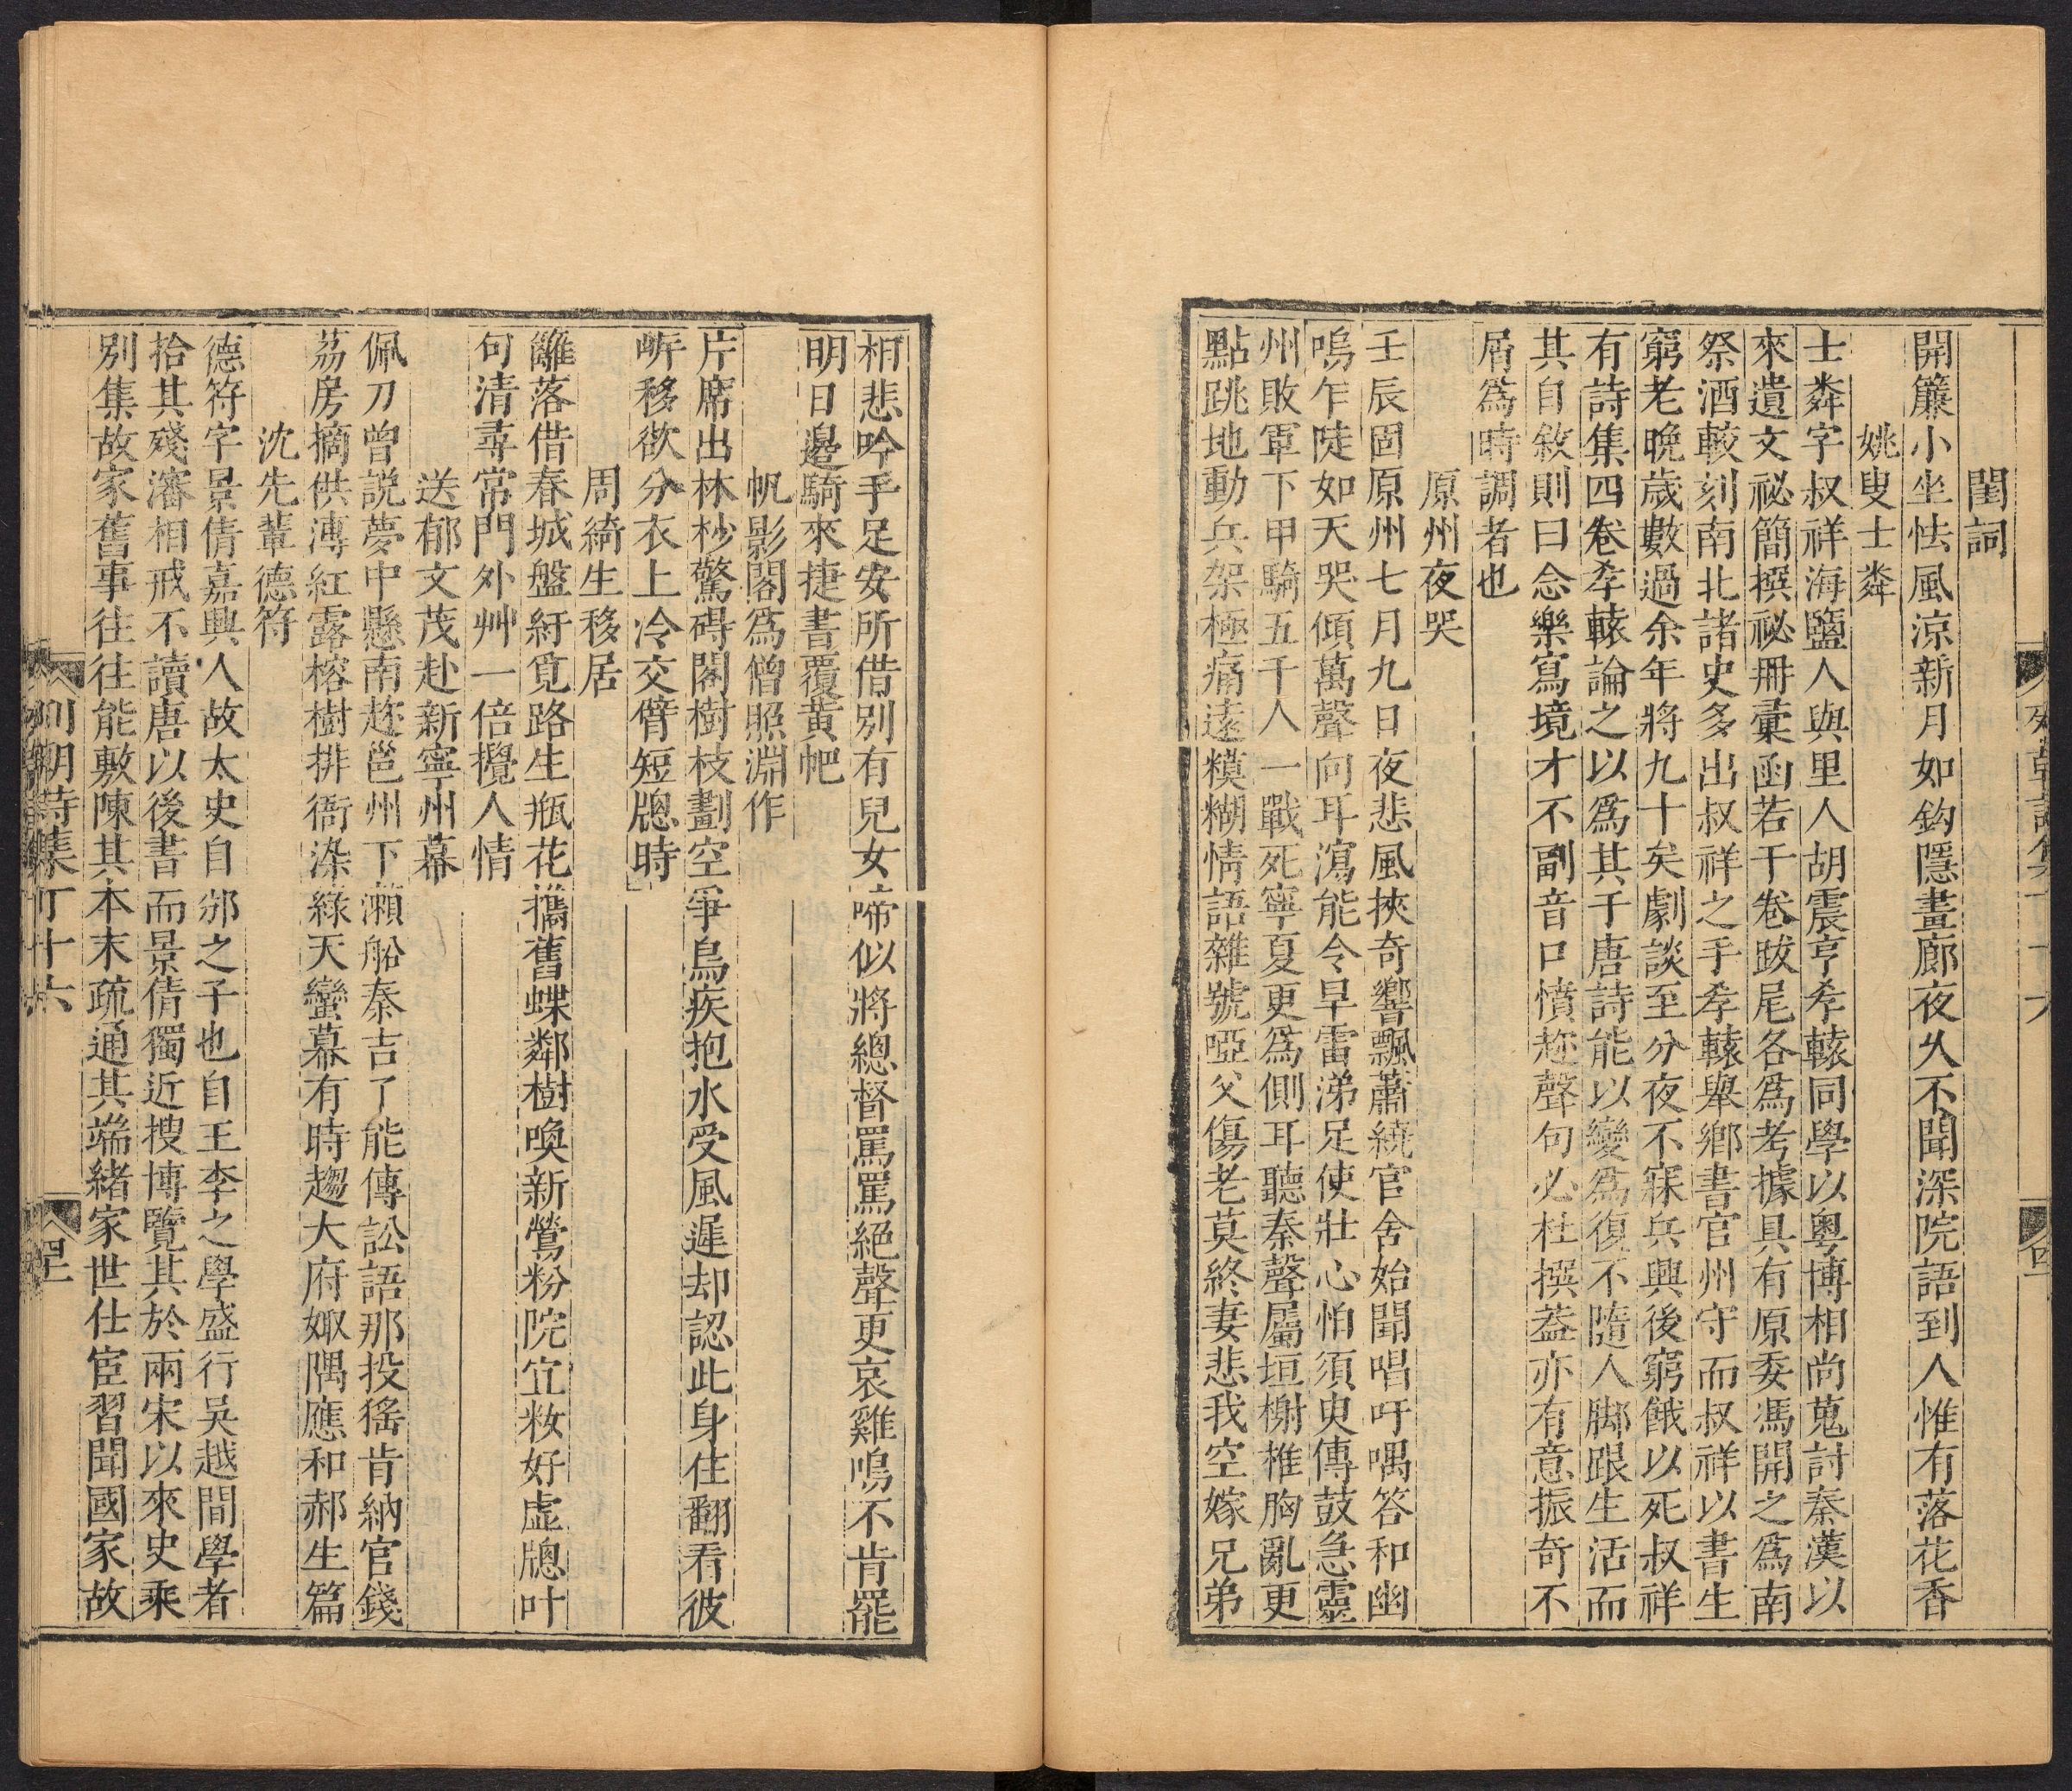 閨詞
開簾小坐怯風涼新月如鈎隱畫廊夜久不聞深院語到人惟有落花香
姚叟士粦
士粦字叔祥海鹽人與里人胡震亨孝轅同學以奧博相尚蒐討秦漢以
來遺文祕簡撰祕冊彙函若干卷跋尾各為考據具有原委馮開之為南
祭酒較刻南北諸史多出叔祥之手孝轅舉鄉書官州守而叔祥以書生
窮老晚歲數過余年將九十矣劇談至分夜不寐兵興後窮餓以死叔祥
有詩集四卷孝轅論之以為其于唐詩能以變為復不隨人脚跟生活而
其自敘則曰念樂寫境才不副音口憤趂聲句必杜撰葢亦有意振奇不
屑為時調者也
原州夜哭
壬辰固原州七月九日夜悲風挾奇響飄蕭繞官舍始聞唱吁喁答和幽
嗚乍陡如天哭傾萬聲向耳瀉能令旱雷涕足使壯心怕須臾傳鼓急靈
州敗軍下甲騎五千人一戰死寧夏更為側耳聽秦聲屬垣榭椎胸亂更
點跳地動兵架極痛遠糢糊情語雜號啞父傷老莫終妻悲我空嫁兄弟
相悲吟手足安所借別有兒女啼似將總督罵罵絕聲更哀雞鳴不肯罷
明日邊騎來捷書覆黃帊
帆影閣為僧照淵作
片席出林杪驚碍閣樹枝劃空爭鳥疾抱水受風遲却認此身住翻看彼
㟁移欲分衣上冷交臂短牕時
周綺生移居
籬落借春城盤紆覓路生瓶花攜舊蝶鄰樹喚新鶯粉院宜妝好虛牕叶
句清尋常門外艸一倍攪人情
送郁文茂赴新寧州幕
佩刀曾説夢中懸南趂邕州下瀨船秦吉了能傳訟語那投猺肯納官錢
荔房摘供漙紅露榕樹排衙染綠天蠻幕有時趨大府娵隅應和郝生篇
沈先輩德符
德符字景倩嘉興人故太史自邠之子也自王李之學盛行吳越間學者
拾其殘瀋相戒不讀唐以後書而景倩獨近搜博覽其於兩宋以來史乘
別集故家舊事往往能敷陳其本末疏通其端緒家世仕宦習聞國家故
列朝詩集丁十六